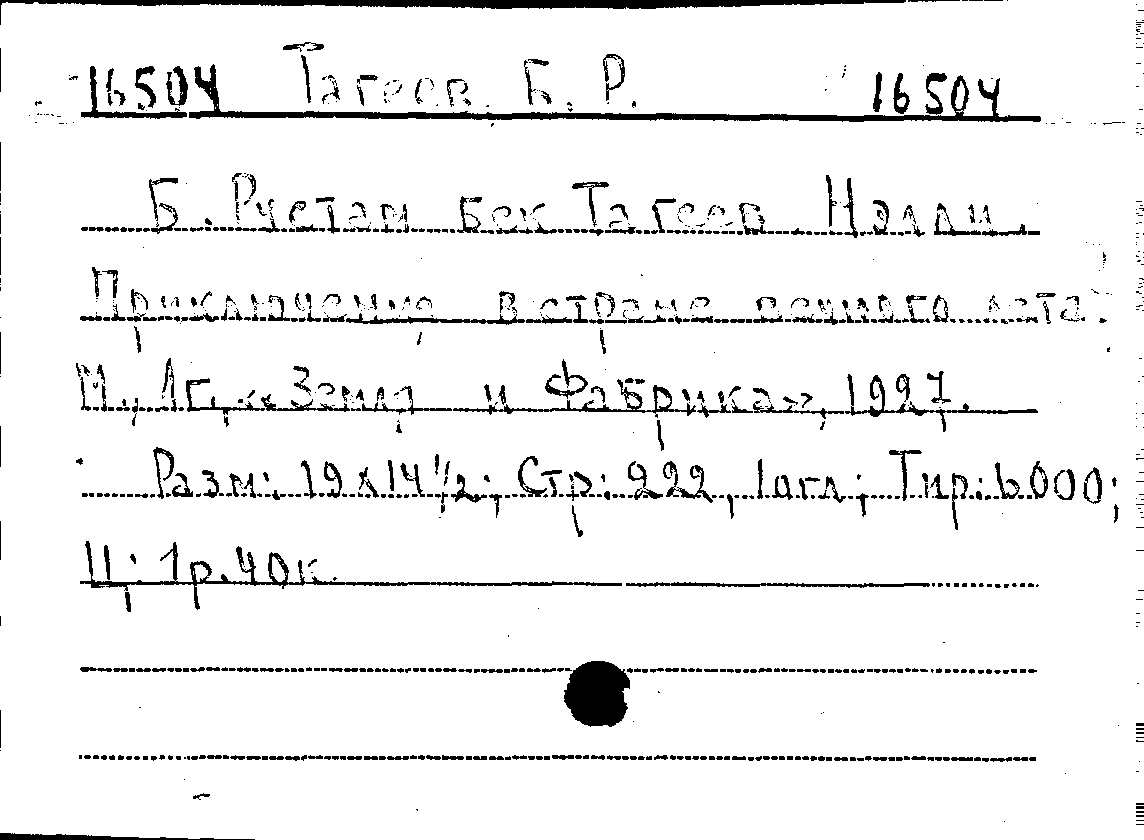 16504 Тагеев Б. Р. 16504
Б. Рустам Бек Тагеев. Нэлли.
Приключения в стране вечного лета.
М., Лг., «Земля и Фабрика», 1927.
Разм: 19x14 1/2; Стр: 222, 1 огл; Тир: 6000;
Ц: 1р. 40к.